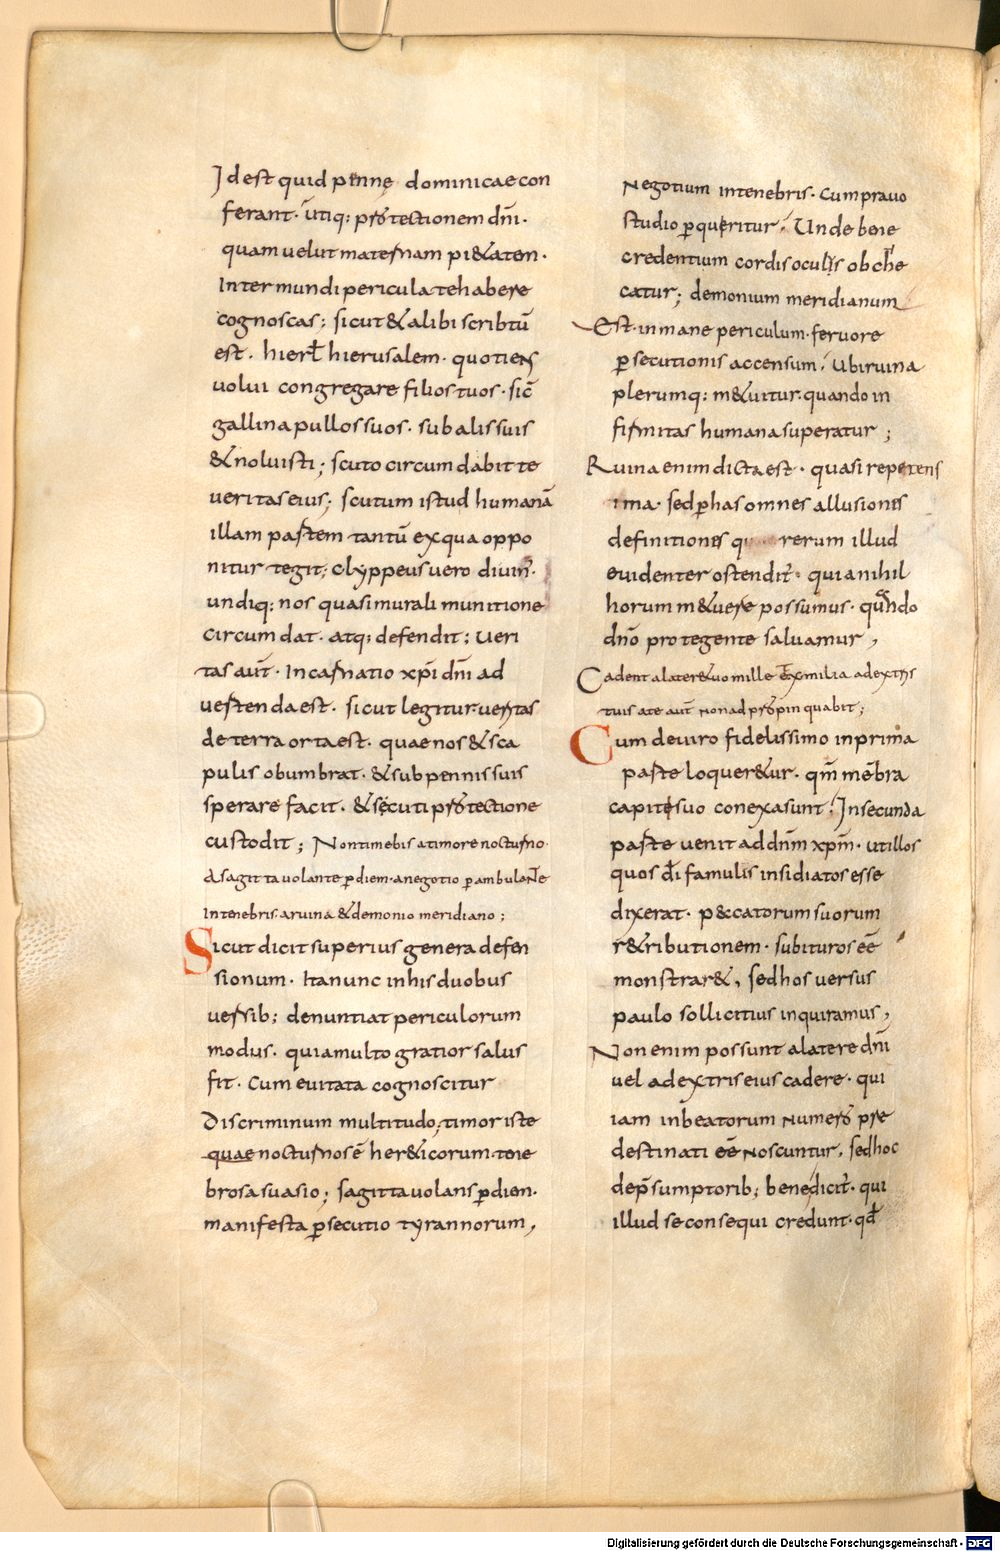 Id est quid penne dominicae con
ferant · utiq: ꝓtectionem dn̄i ·
quam uelut maternam pi&aten ·
Inter mundi pericula te habere
cognoscas; sicut & alibi scribtū
est · hierl̄ hierusalem · quotiens
uolui congregare filios tuos · sic̄
gallina pullos suos · sub alis suis
& noluisti; scuto circumdabit te
ueritas eius; scutum istud humanā
illam partem tantū ex qua oppo
nitur tegit; Clyppeus uero diuin̄ ·
undiq: nos quasi murali munitione
circumdat · atq: defendit; Ueri
tas aut̄ · Incarnatio xp̄i dn̄i ad
uertenda est · sicut legitur ueritas
de terra orta est · quae nos & sca
pulis obumbrat · & sub pennis suis
sperare facit · & secuti ꝓtectione
custodit; Non timebis a timore nocturno ·
A sagitta uolante ꝑ diem · a negotio ꝑambulante
in tenebris a ruina & demonio meridiano;
Sicut dicit superius genera defen
sionum · Ita nunc in his duobus
uersib; denuntiat periculorum
modus · quia multo gratior salus
fit · Cum euitata cognoscitur
Discriminum multitudo, timor iste
quae nocturnos ē her&icorum tene
brosa suasio; sagitta uolans ꝑ dien ·
manifesta ꝑsecutio tyrannorum,
Negotium in tenebris · Cum prauo
studio ꝑqueritur; Unde bene
credentium cordis oculis obche
catur; demonium meridianum
Est · inmane periculum · feruore
ꝑsecutionis accensum; Ubi ruina
plerumq: m&uitur · quando in
firmitas humana superatur;
Ruina enim dicta est · quasi repetens
ima · sed ꝑ has omnes allusiones
definitiones rerum illud
euidenter ostendit̄ · quia nihil
horum m&uere possumus · quando
dn̄o protegente saluamur,
Cadent a later& uo mille & x milia a dextris
tuis a te aut̄ non adꝓpinquabit;
Cum de uiro fidelissimo in prima
parte loquer&ur · qm̄ mēbra
capiti suo conexa sunt; In secunda
parte uenit ad dn̄m xp̄m · ut illos
quos dī famulis insidiatos esse
dixerat · p&catorum suorum
r&ributionem · subituros eē
monstrar&, sed hos uersus
paulo sollicitius inquiramus,
Non enim possunt a latere dn̄i
uel a dextris eius cadere · qui
iam in beatorum numero pre
destinati eē noscuntur, sed hoc
de p̄sumptorib; benedicit̄ · qui
illud se consequi credunt · qđ
Digitalisierung gefördert durch die Deutsche Forschungsgemeinschaft - DFG